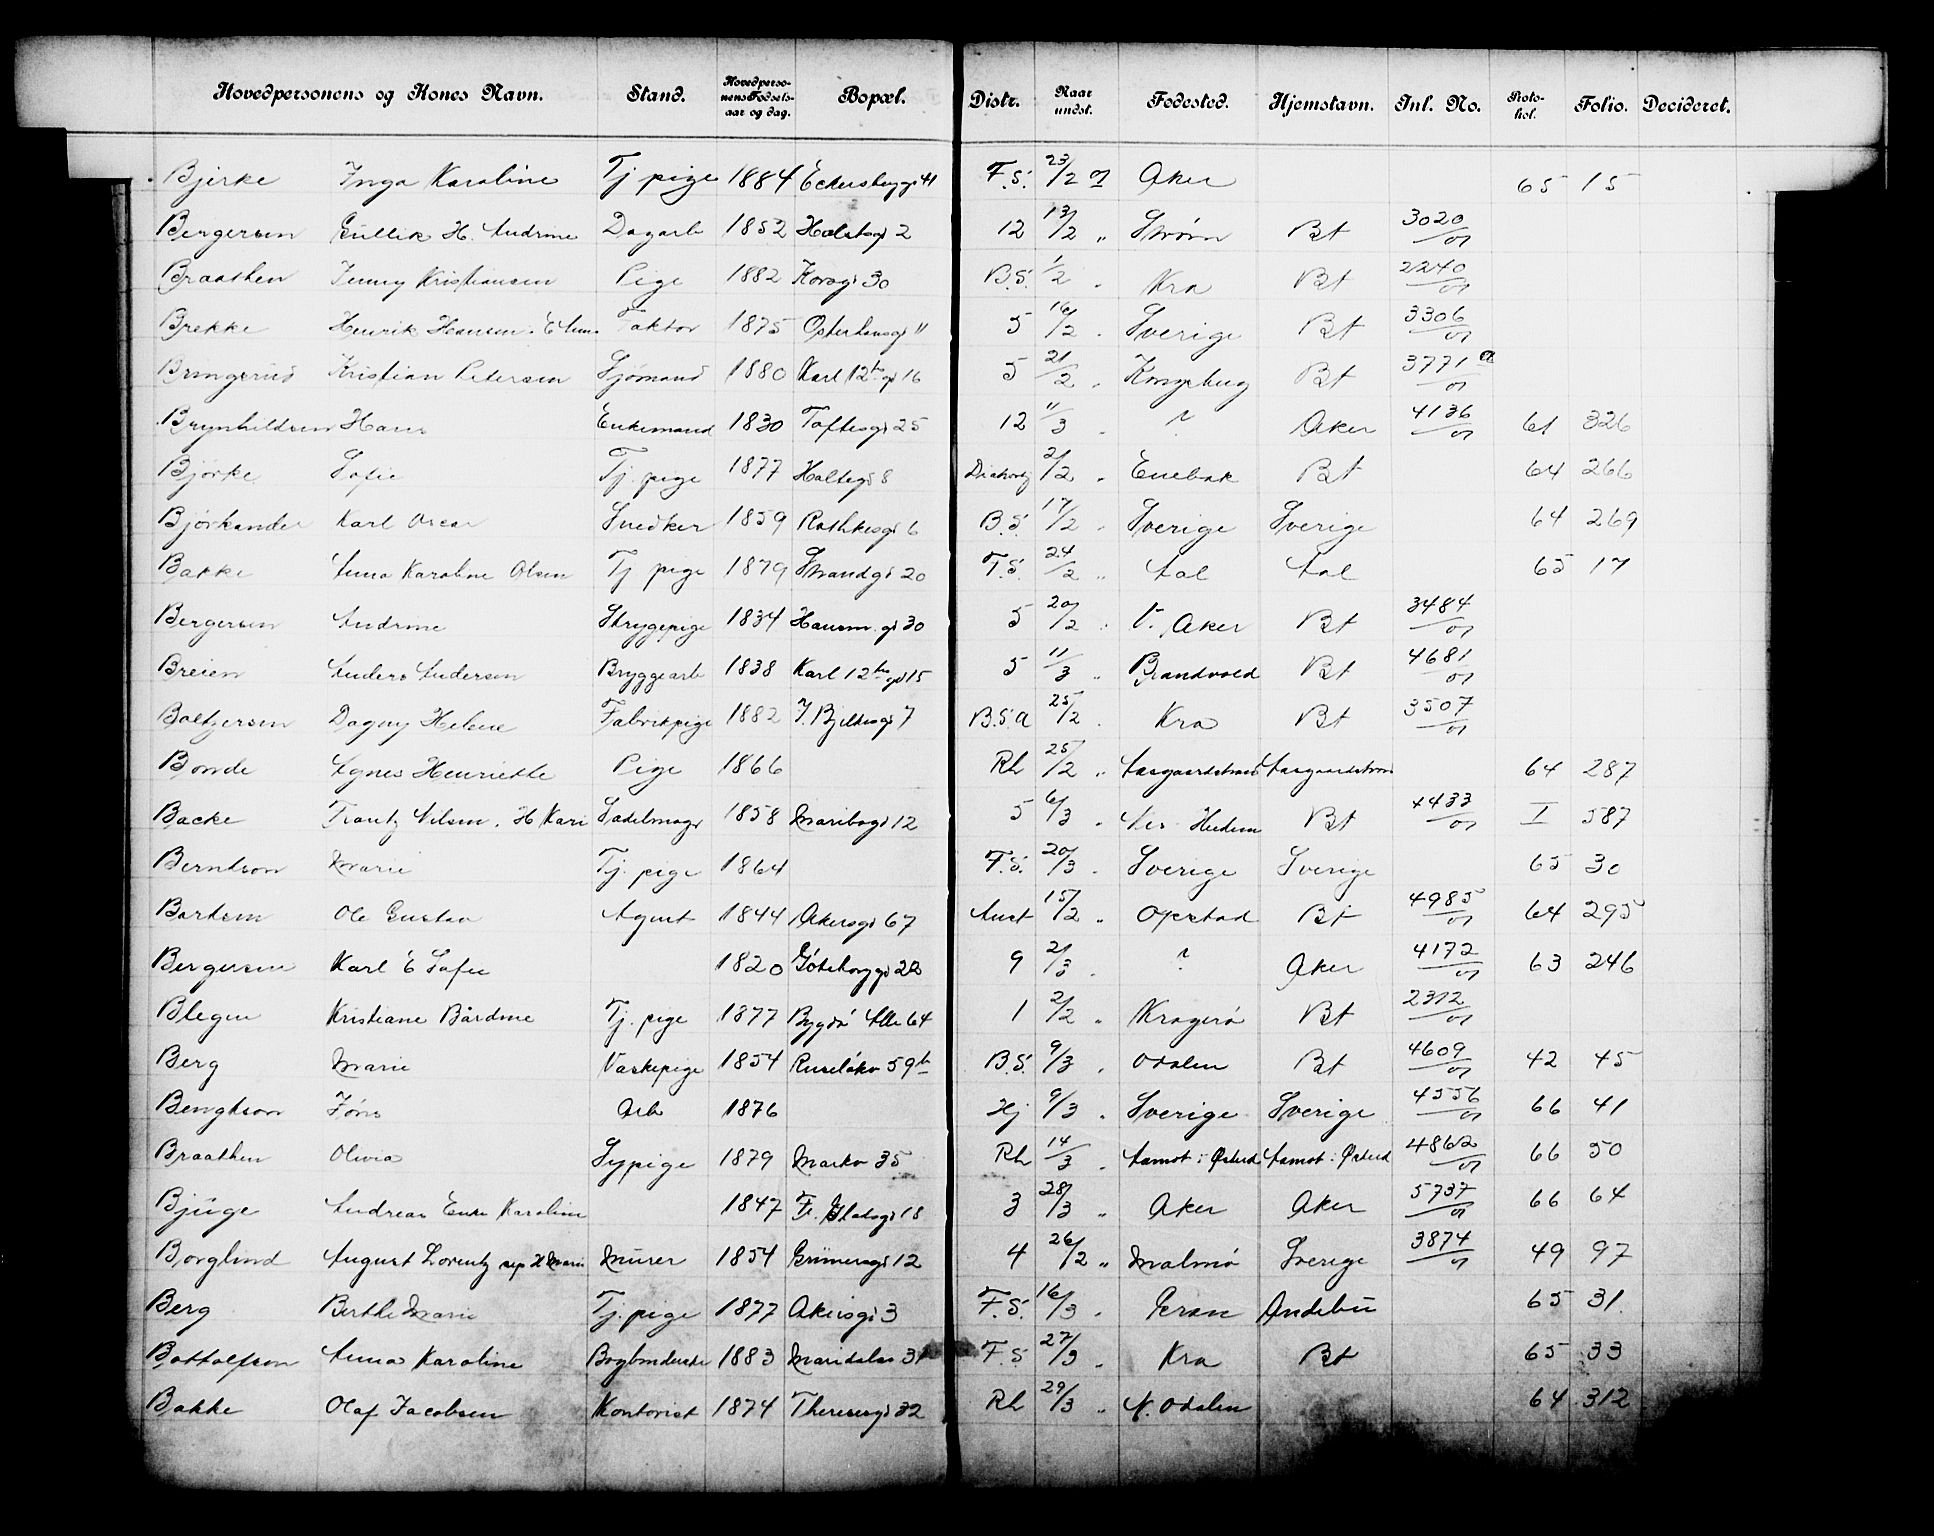 Hovedpersonens og Kones Navn. Stand. Hovedpersonens Fødselsaar og dag. Bopæl. Distr. Naar undst. Fødested. Hjemstavn. Inl. No. Protokol. Folio. Decideret.
Bjerke Inga Karoline Tj. pige 1884 Eckersbergs 41 F.S. 23/2 01 Aker 65 15
Bergersen Gullik H. Andrine Dagarb 1852 Holstsg 2 12 13/2 " Strøm Bt 3020/01
Braathen Jenny Kristiansen Pige 1882 Korsg 30 B.S. 1/2 " Kra Bt 2240/01
Brekke Henrik Hansen. E Ann. Faktor 1875 Osterhausg 11 5 16/2 " Sverige Bt 3306/01
Bringerud Kristian Petersen Sjømand 1880 Karl 12tes g 16 5 21/2 " Kongsberg Bt 3771 a/01
Brynhildsen Hans Enkemand 1830 Toftesg 25 12 11/3 " ? Aker 4136/01 61 326
Bjørke Sofie Tj. pige 1877 Holtegt 8 21/2 " Enebak Bt 64 266
Björkander Karl Oscar Snedker 1859 Rathkesg 6 B.S. 17/2 " Sverige Sverige 64 269
Bakke Anna Karoline Olsen Tj pige 1879 Strandg 20 F.S. 24/2 " Aal Aal 65 17
Bergersen Andrine Strygepige 1834 Hausm. g 30 5 20/2 " V. Aker Bt 3484/01
Breien Anders Andersen Bryggearb 1838 Karl 12tes g 15 5 11/3 " Brandvold Bt 4681/01
Baltzersen Dagny Helene Fabrikpige 1882 J. Bjelkesg 7 B.S.a 25/2 " Kra Bt 3507/01
Bonde Agnes Henriette Pige 1866 Rh 25/2 " Aasgaardstrand Aasgaardstrand 64 287
Backe Frantz Nilsen. H Kari Sadelmag 1858 Maribog 12 5 6/3 " Hedrum Bt 4433/01 I 587
Berntson Marie Tj. pige 1864 F.S. 20/3 " Sverige Sverige 65 30
Bertsen Ole Gustav Agent 1844 Akersg 67 Aust 15/2 " Opstad Bt 4985/01 64 295
Bergersen Karl E Sofie 1820 Göteborgg 22 9 2/3 " ? Aker 4172/01 63 246
Blegen Kristiane Bårdine Tj. pige 1877 Bygdö Alle 64 1 2/2 " Kragerø Bt 2312/01
Berg Marie Vaskepige 1854 Ruseløkv 59b B.S. 9/3 " Odalen Bt 4609/01 42 45
Bengtson Jøns Arb 1876 Hj 9/3 " Sverige Sverige 4556/01 66 41
Braathen Olivia Sypige 1879 Markv 35 Rh 14/3 " Aamot i Østerd Aamot i Østerd 4862/01 66 50
Bjuge Andreas Enke Karoline 1847 Fr. Gladsg 18 3 28/3 " Aker Aker 5737/01 66 64
Borglund August Lorentz sep H Marie Murer 1854 Grünersg 12 4 26/2 " Malmö Sverige 3874/01 49 97
Berg Berthe Marie Tj. pige 1877 Akersg 3 F.S. 16/3 " Andebu 65 31
Bottolfson Anna Karoline Bogbinderske 1883 Maridalsv 31 F.S 27/3 " Kra Bt 65 33
Bakke Olaf Jacobsen Kontorist 1874 Theresesg 32 Rh 29/3 " N. Odalen 64 312